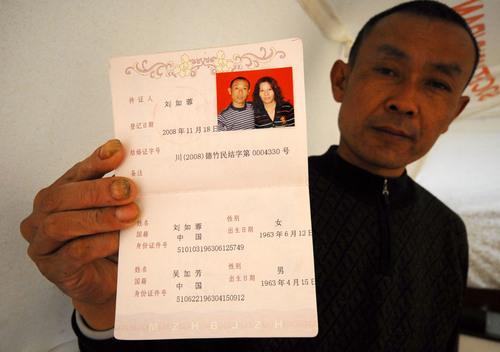 持证人 刘如蓉
登记日期 2008年11月18日
结婚证字号 川(2008)德竹民结字第0004330号
备注
姓名 刘如蓉 性别 女
国籍 中国 出生日期 1963年6月12日
身份证件号 510103196306125749
姓名 吴加芳 性别 男
国籍 中国 出生日期 1963年4月15日
身份证件号 510622196304150912
MZHBJZH